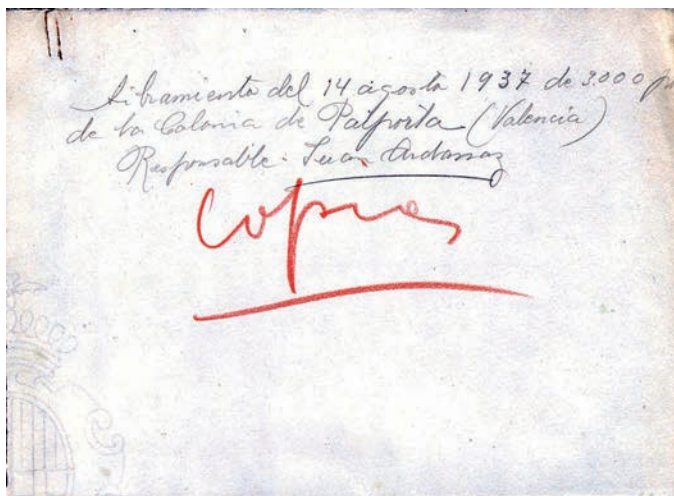 Libramiento del 14 agosto 1937 de 3.000
de la Colonia de Paiporta (Valencia)
Responsable: Juan
Copias